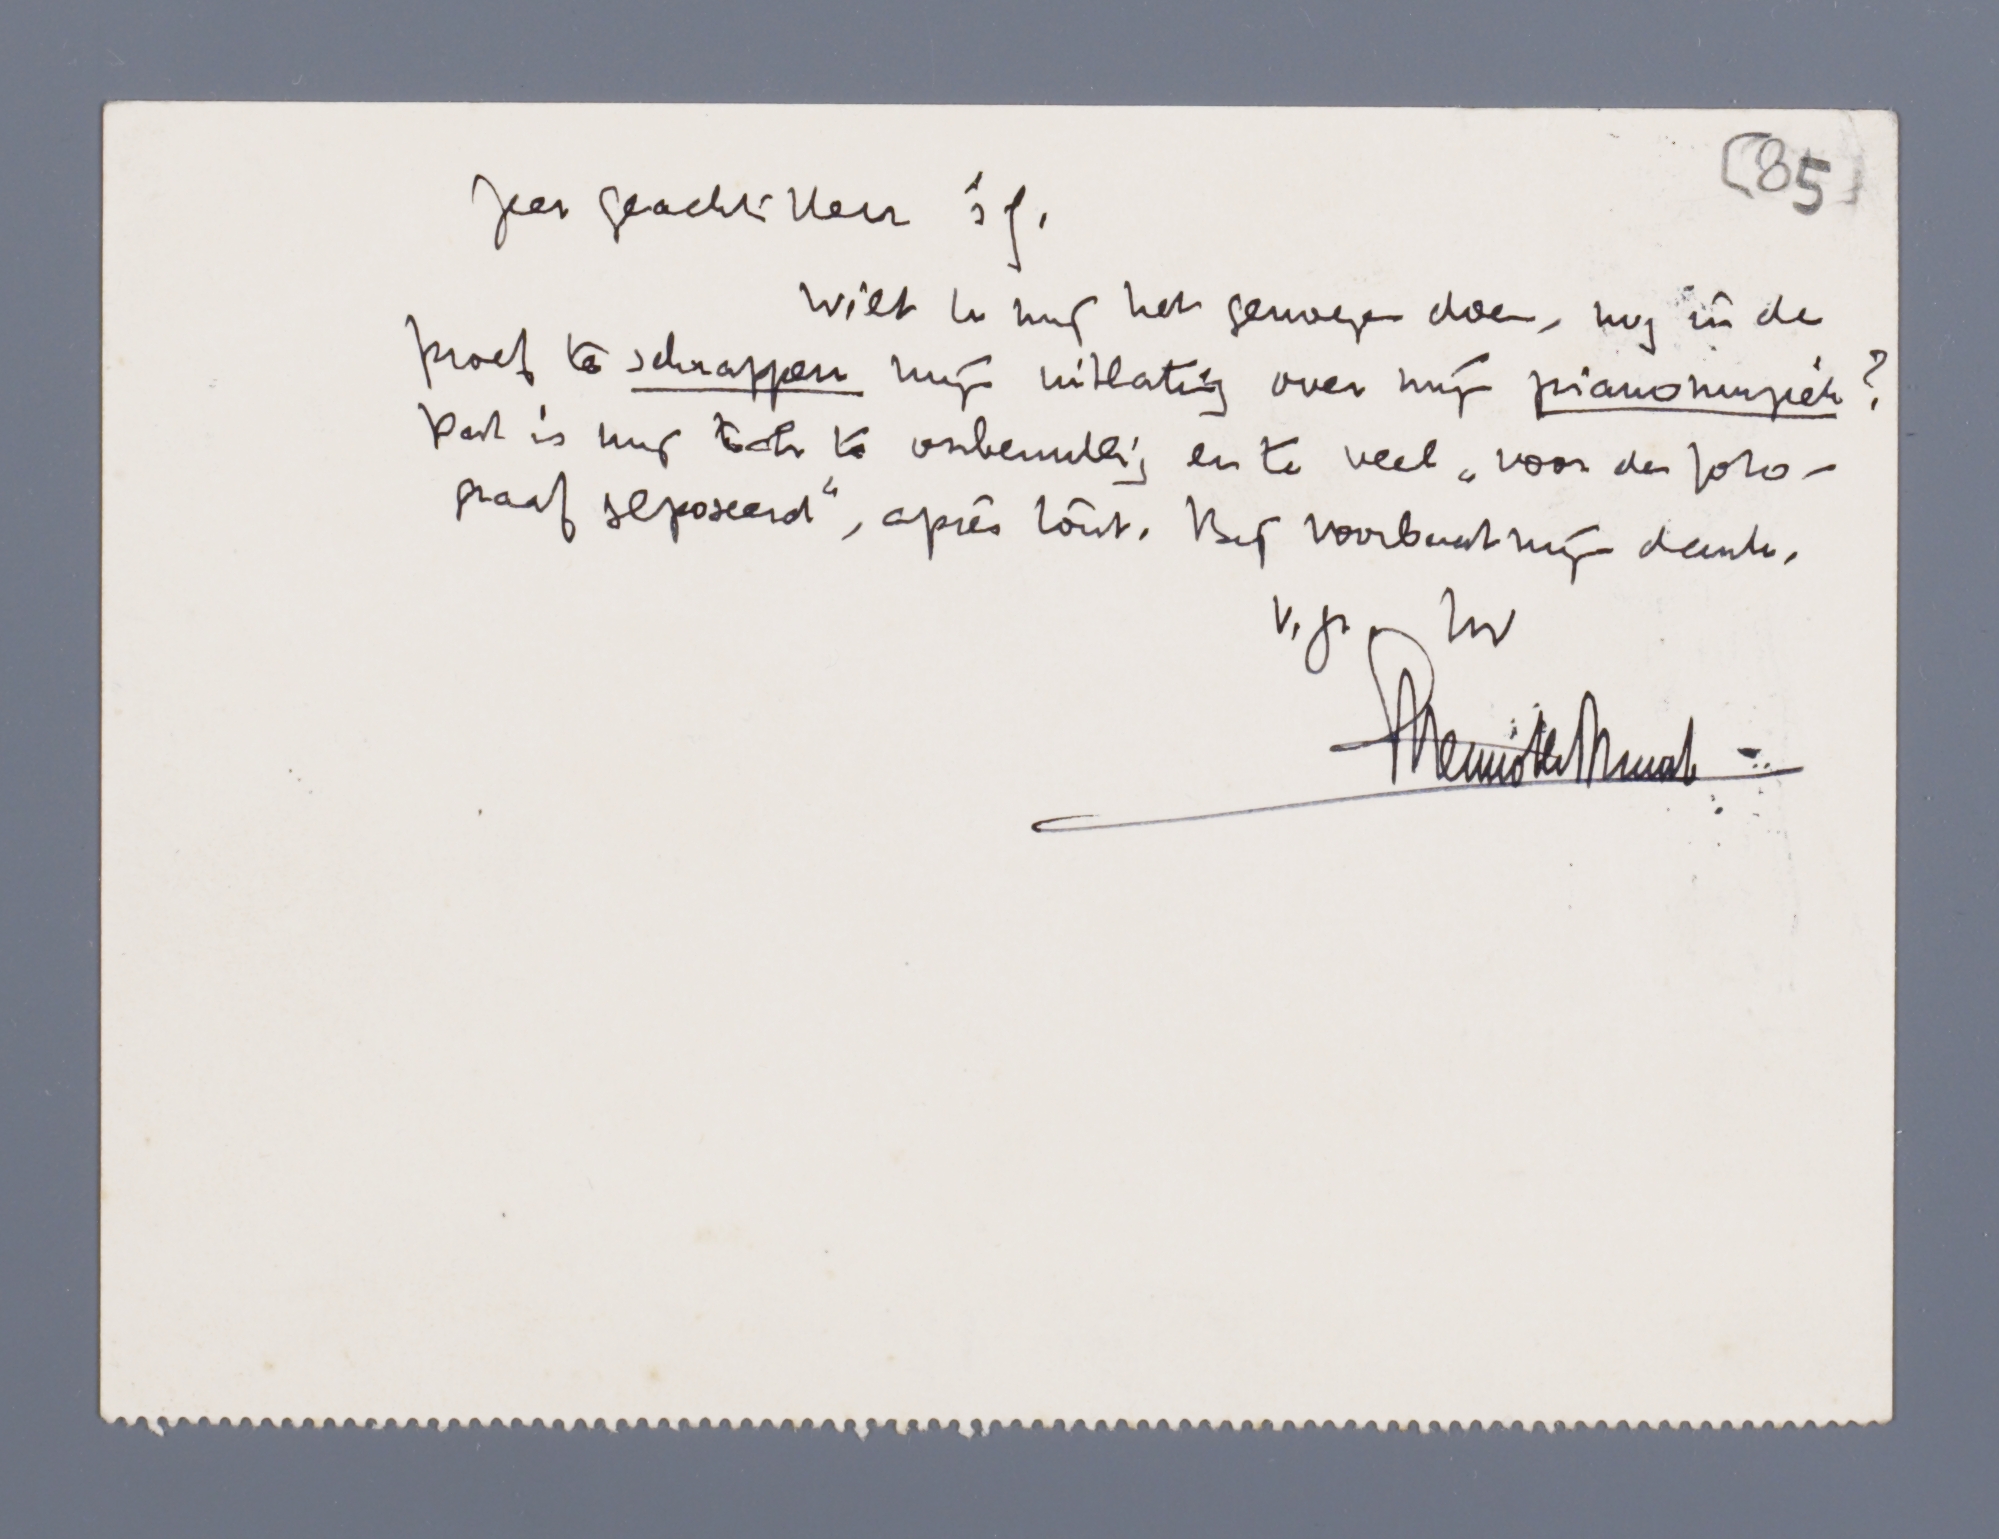 [85]
Zeer geachte Heer
Wilt U mij het genoegen doen, nog in de
proef te schrappen mijn uitlating over mijn pianomuziek?
Dat is mij toch te onbenullig en te veel „voor de foto-
graaf geposeerd“, après tout. Bij voorbaat mijn dank.
v. gr. Uw